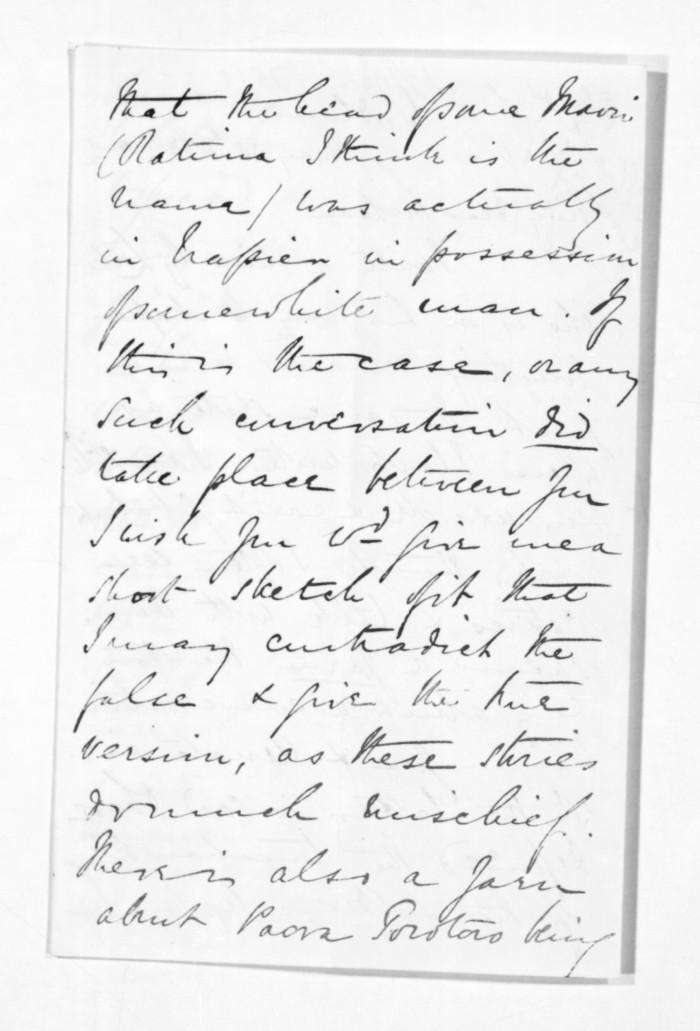 that the head of some Maori
(Ratima I think is the
name) was actually
in Napier in possession
of some white man. If
this is the case, or any
such conversation did
take place between you
I wish you wd. give me a
short sketch of it that
I may contradict the
false & give the true
version, as these stories
do much mischief.
There is also a yarn
about Paora Torotoro being